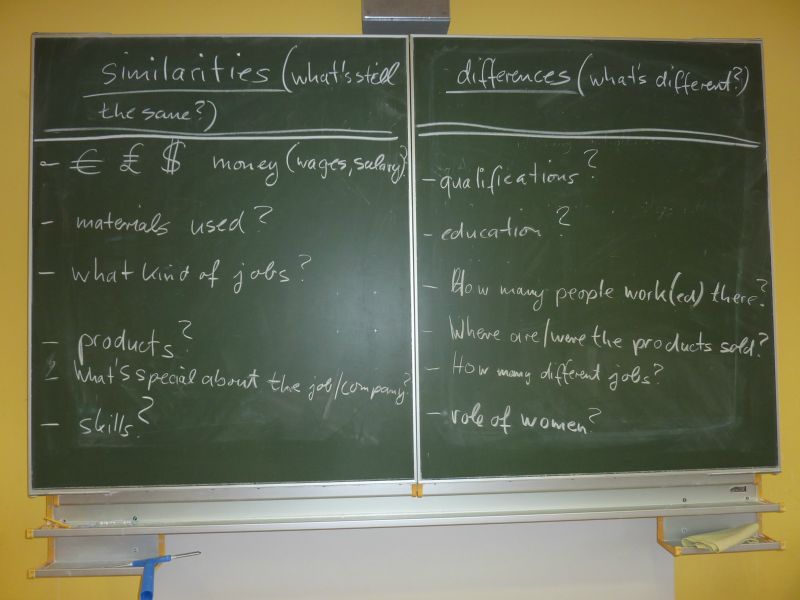 similarities (what's still
the same?)
- € £ $ money (wages, salary?
- materials used?
- what kind of jobs?
- products?
- What's special about the job/company?
- skills?
differences (what's different?)
- qualifications?
- education?
- How many people work(ed) there?
- Where are/were the products sold?
- How many different jobs?
- role of women?